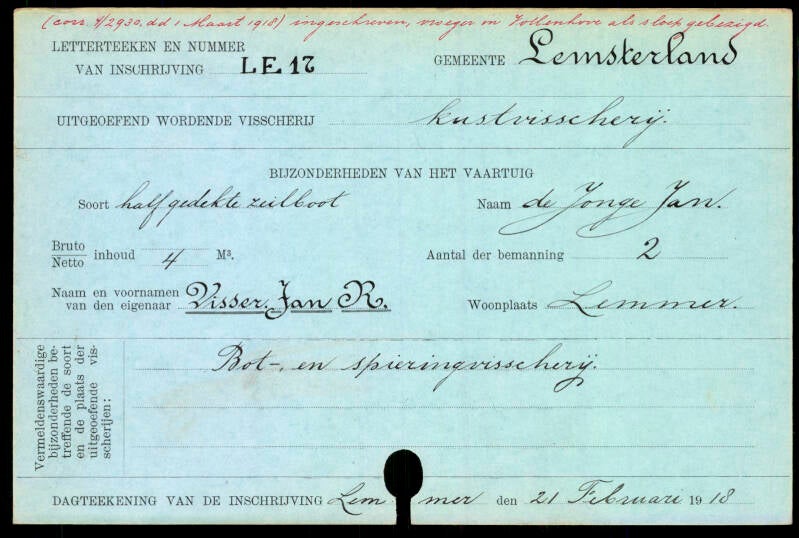 (corr. 1/2930, dd 1 Maart 1918) ingeschreven, vroeger in Vollenhove als sloep gebezigd.
LETTERTEEKEN EN NUMMER
VAN INSCHRIJVING LE 17 GEMEENTE Lemsterland
UITGEOEFEND WORDENDE VISSCHERIJ kustvisscherij.
BIJZONDERHEDEN VAN HET VAARTUIG
Soort half gedekte zeilboot Naam de Jonge Jan.
Bruto
Netto inhoud 4 M³. Aantal der bemanning 2
Naam en voornamen
van den eigenaar Visser, Jan R. Woonplaats Lemmer.
Vermeldenswaardige
bijzonderheden be-
treffende de soort
en de plaats der
uitgeoefende vis-
scherijen:
Bot-, en spieringvisscherij.
DAGTEEKENING VAN DE INSCHRIJVING Lemmer den 21 Februari 1918